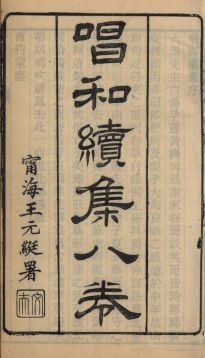 唱和續集八卷
甯海王元綎署